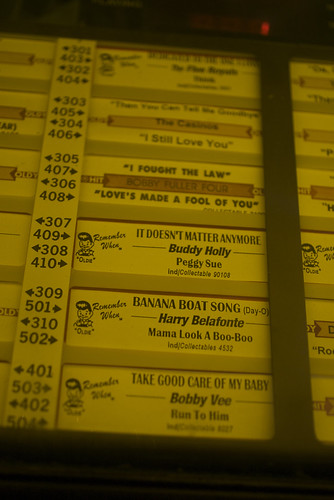 301
403
302
404
The Five Royals
303
405
304
406
"Then You Can Tell Me Goodbye
The Casinos
"I Still Love You"
305
407
306
408
"I FOUGHT THE LAW"
HIT BOBBY FULLER FOUR
"LOVE'S MADE A FOOL OF YOU"
307
409
308
410
Remember When
"OLDIE"
IT DOESN'T MATTER ANYMORE
Buddy Holly
Peggy Sue
Ind/Collectable 90108
309
501
310
502
Remember When
"OLDIE"
BANANA BOAT SONG (Day-O)
Harry Belafonte
Mama Look A Boo-Boo
Ind/Collectables 4532
401
503
402
504
Remember When
"OLDIE"
TAKE GOOD CARE OF MY BABY
Bobby Vee
Run To Him
Ind/Collectable 6027